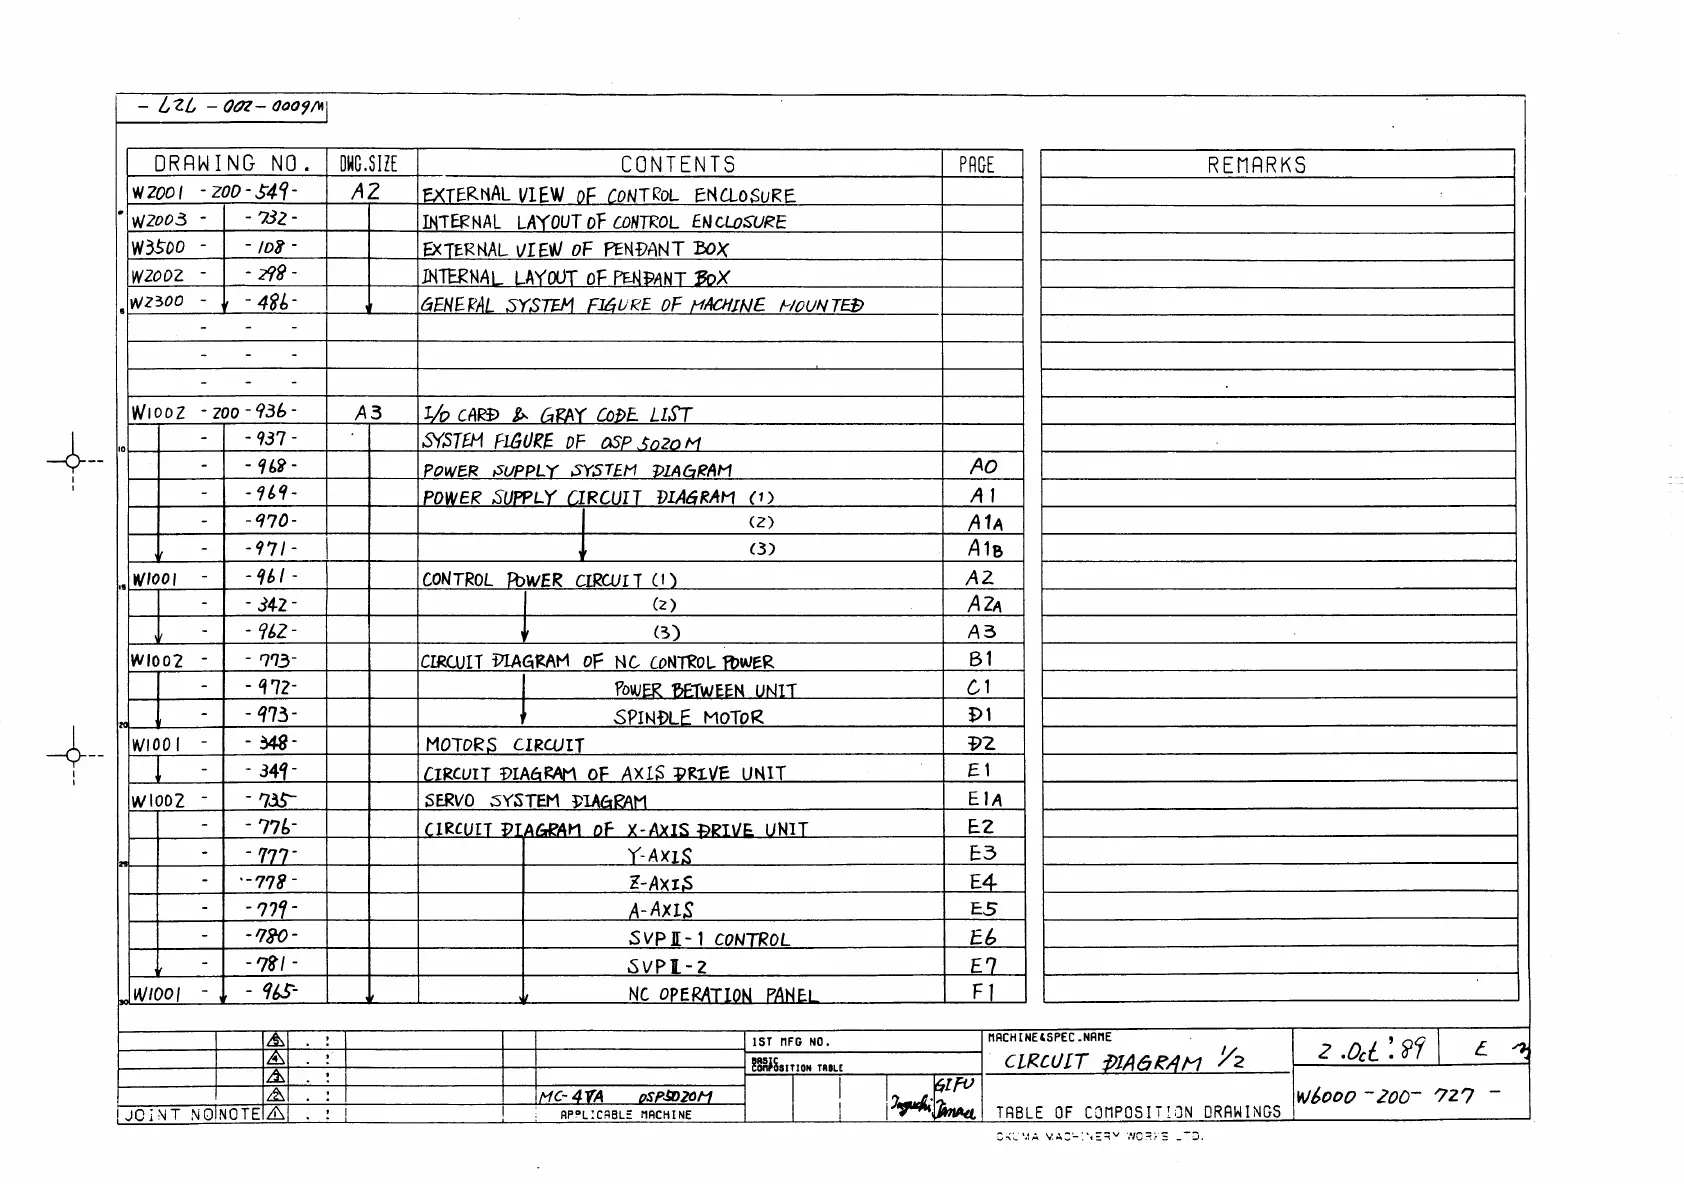 W6000-200-727-
DRAWING NO. DWG.SIZE CONTENTS PAGE REMARKS
W2001 -200-549- A2 EXTERNAL VIEW OF CONTROL ENCLOSURE
W2003 - -732- INTERNAL LAYOUT OF CONTROL ENCLOSURE
W3500 - -108- EXTERNAL VIEW OF PENDANT BOX
W2002 - -298- INTERNAL LAYOUT OF PENDANT BOX
5 W2300 - -486- GENERAL SYSTEM FIGURE OF MACHINE MOUNTED
- - -
- - -
- - -
W1002 -200-936- A3 I/O CARD & GRAY CODE LIST
10 - -937- SYSTEM FIGURE OF OSP 5020M
- -968- POWER SUPPLY SYSTEM DIAGRAM A0
- -969- POWER SUPPLY CIRCUIT DIAGRAM (1) A1
- -970- (2) A1A
- -971- (3) A1B
15 W1001 - -961- CONTROL POWER CIRCUIT (1) A2
- -342- (2) A2A
- -962- (3) A3
W1002 - -773- CIRCUIT DIAGRAM OF NC CONTROL POWER B1
- -972- POWER BETWEEN UNIT C1
20 - -973- SPINDLE MOTOR D1
W1001 - -348- MOTORS CIRCUIT D2
- -349- CIRCUIT DIAGRAM OF AXIS DRIVE UNIT E1
W1002 - -735- SERVO SYSTEM DIAGRAM E1A
- -776- CIRCUIT DIAGRAM OF X-AXIS DRIVE UNIT E2
25 - -777- Y-AXIS E3
- -778- Z-AXIS E4
- -779- A-AXIS E5
- -780- SVPII-1 CONTROL E6
- -781- SVPII-2 E7
30 W1001 - -965- NC OPERATION PANEL F1
5 . :
4 . :
3 . :
2 . : MC-4VA OSP5020M
JOINT NO NOTE 1 . : APPLICABLE MACHINE
1ST MFG NO.
BASIC COMPOSITION TABLE
GIFU
Taguchi Tanaca
MACHINE&SPEC.NAME
CIRCUIT DIAGRAM 1/2
TABLE OF COMPOSITION DRAWINGS
2.Oct.'89 E
W6000-200-727-
OKUMA MACHINERY WORKS LTD.